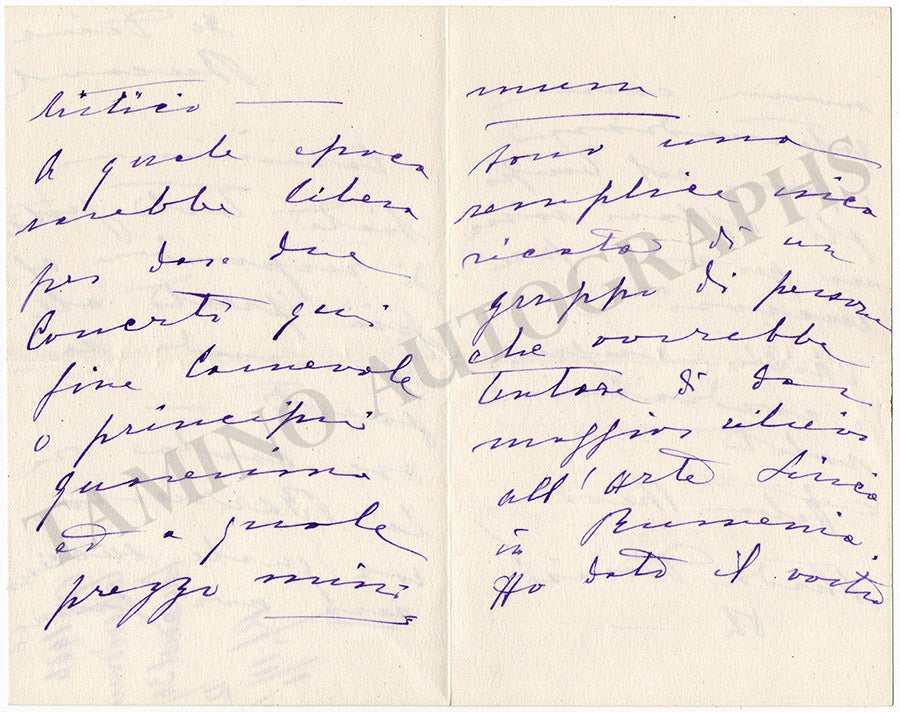 tistico —
A quale epoca
sarebbe libera
per dare due
Concerti qui
fine Carnevale
o principii
quaresima
ed a quale
prezzo mini=
mum
sono una
semplice
ricato di un
gruppo di persone
che vorrebbe
tentare di dar
maggior rilievo
all'Arte Lirica
in Rumenia.
Ho dato il vostro
TAMINO AUTOGRAPHS